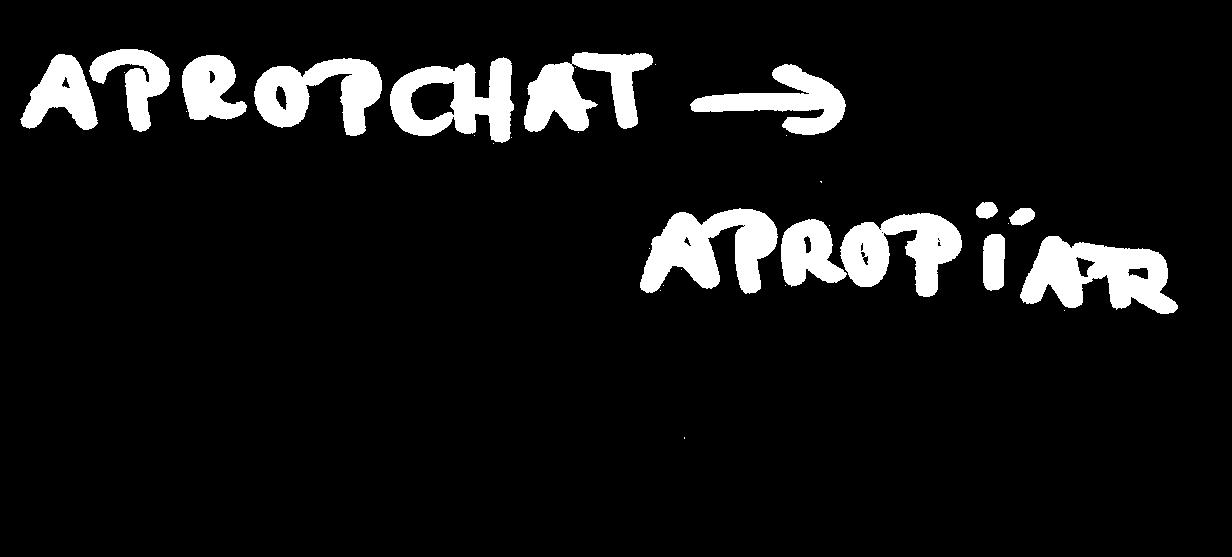 APROPCHAT →
APROPÏAR